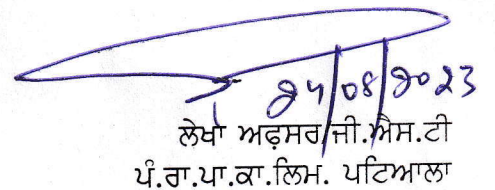 24/08/2023
ਲੇਖਾ ਅਫ਼ਸਰ/ਜੀ.ਐਸ.ਟੀ
ਪੰ.ਰਾ.ਪਾ.ਕਾ.ਲਿਮ. ਪਟਿਆਲਾ